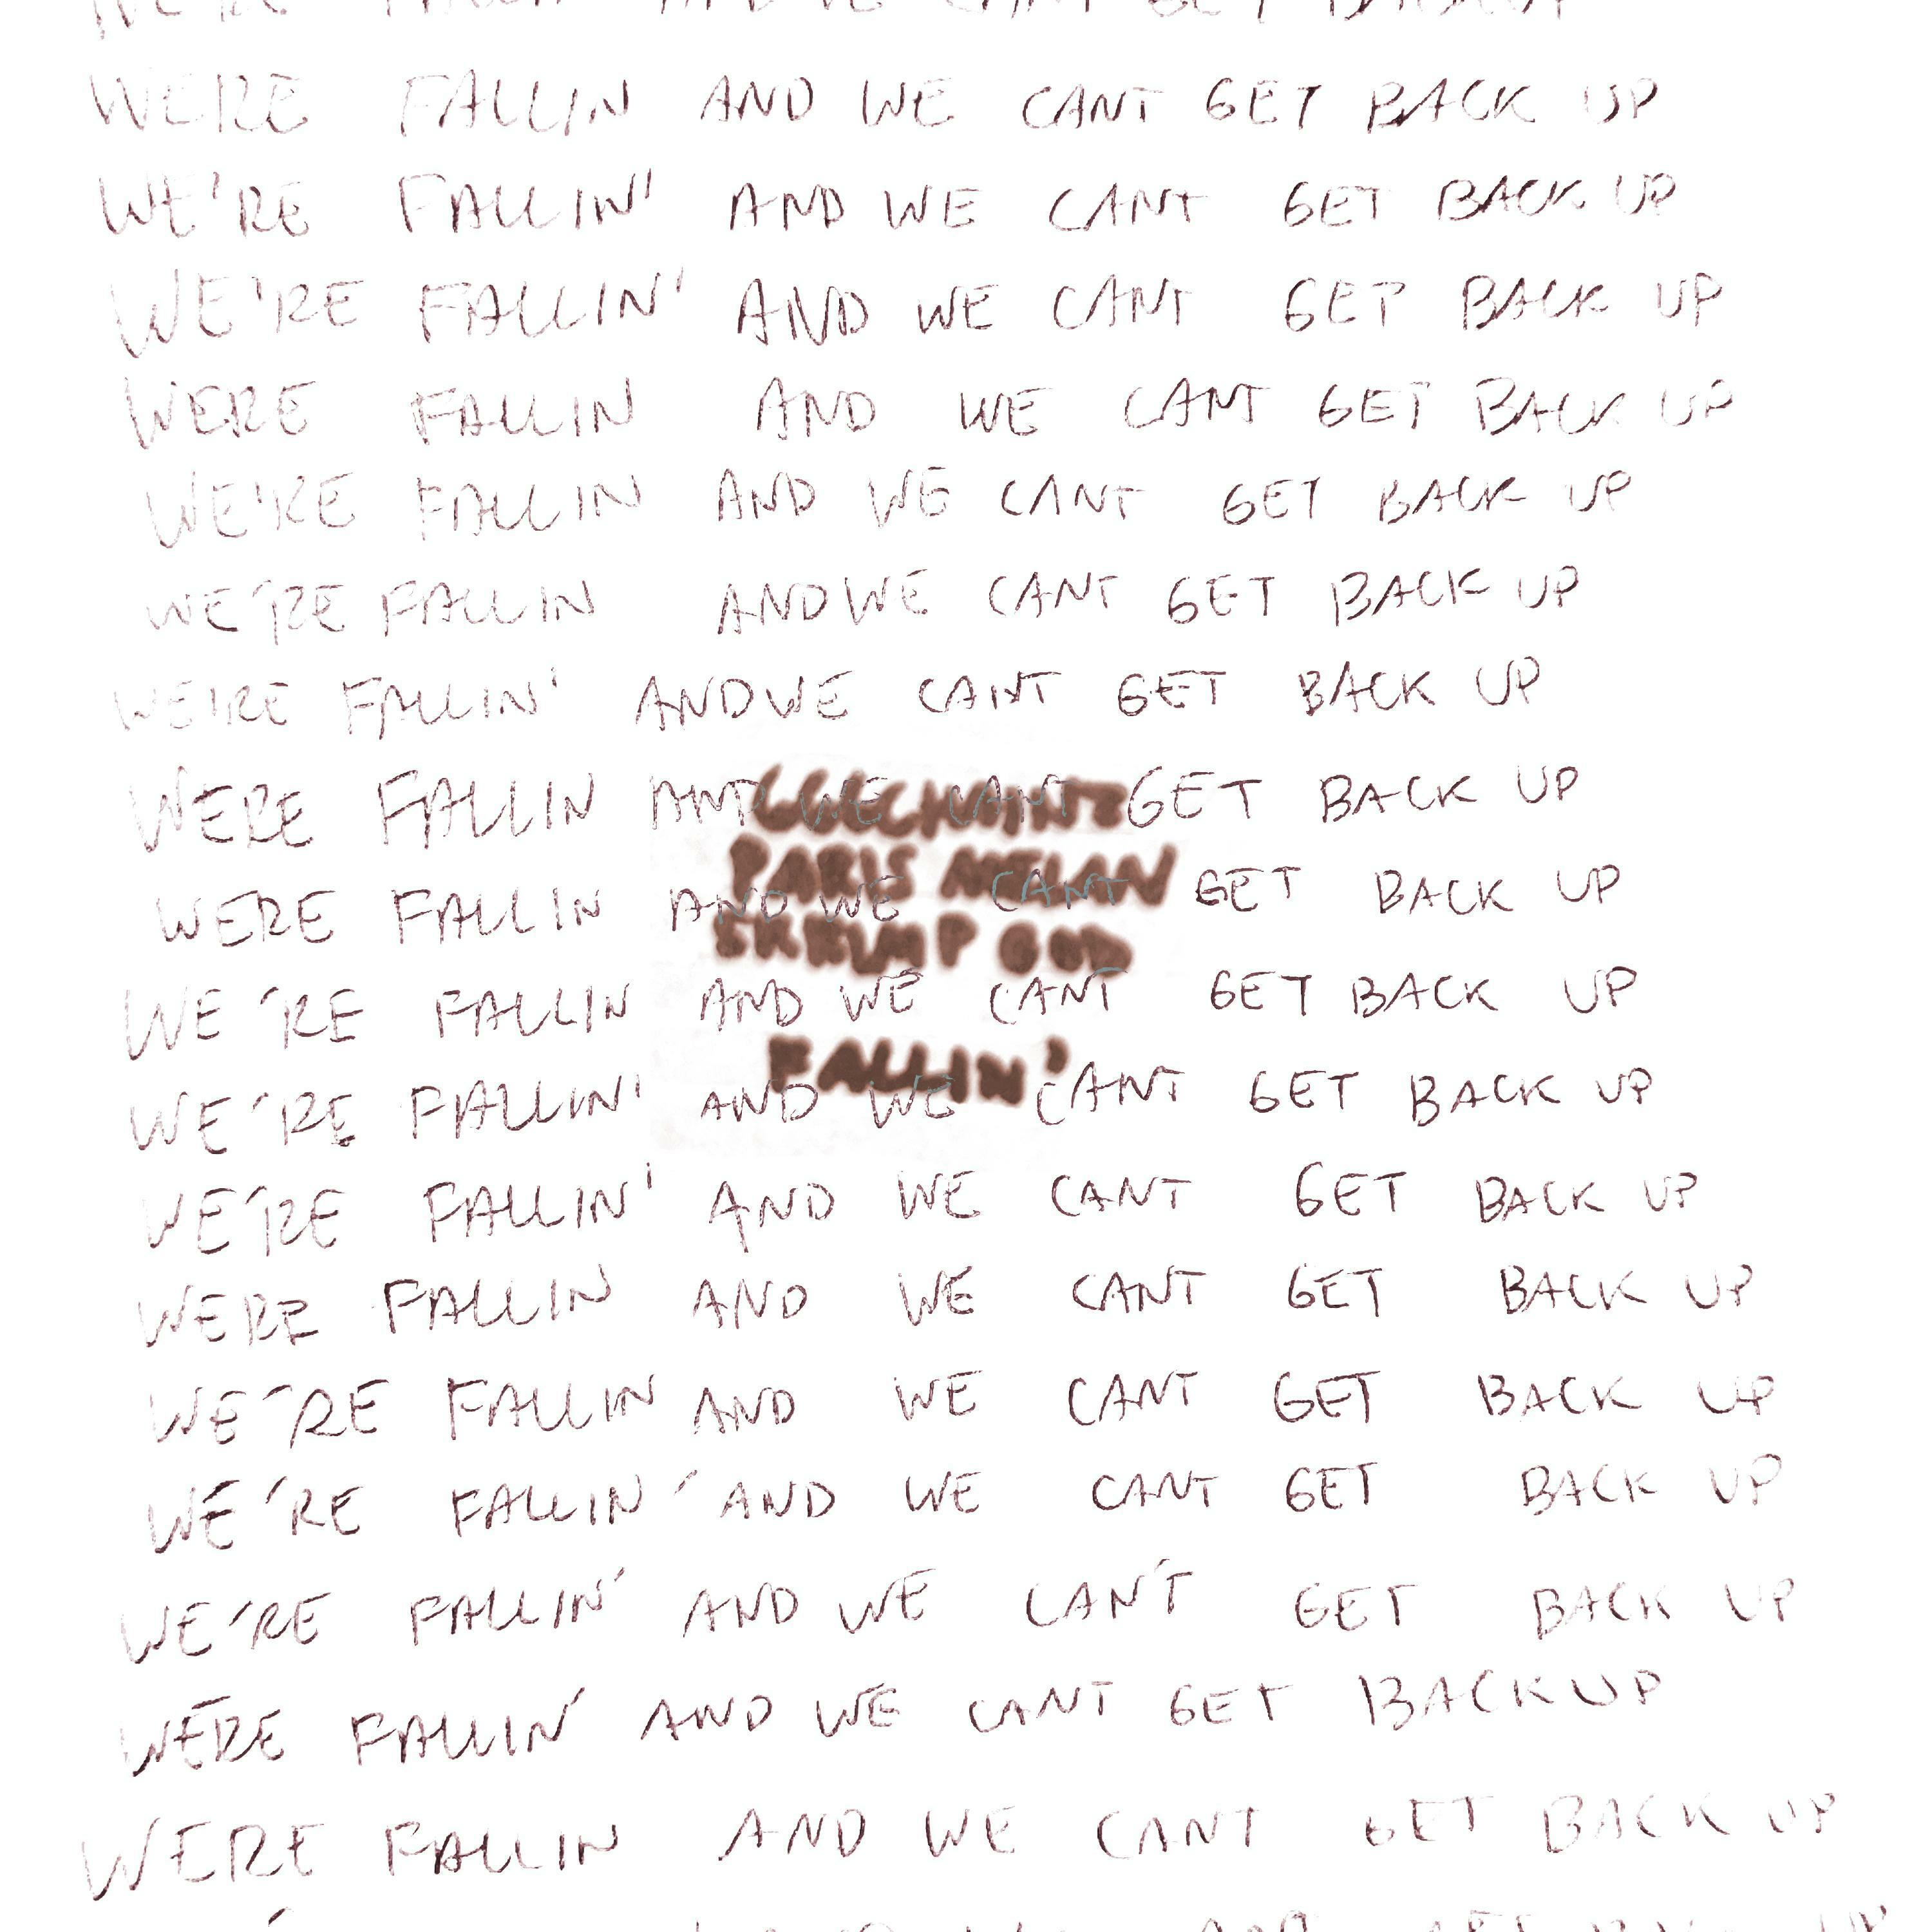 WE'RE FALLIN AND WE CANT GET BACK UP
WERE FALLIN AND WE CANT GET BACK UP
WE'RE FALLIN' AND WE CANT GET BACK UP
WE'RE FALLIN' AND WE CANT GET BACK UP
WERE FALLIN AND WE CANT GET BACK UP
WE'RE FALLIN AND WE CANT GET BACK UP
WE'RE FALLIN AND WE CANT GET BACK UP
WE'RE FALLIN' AND WE CANT GET BACK UP
WERE FALLIN AND WE CANT GET BACK UP
PARIS
WERE FALLIN AND WE CANT GET BACK UP
GOD
WE'RE FALLIN AND WE CANT GET BACK UP
FALLIN'
WE'RE FALLIN' AND WE CANT GET BACK UP
WE'RE FALLIN' AND WE CANT GET BACK UP
WERE FALLIN AND WE CANT GET BACK UP
WE'RE FALLIN AND WE CANT GET BACK UP
WE'RE FALLIN' AND WE CANT GET BACK UP
WE'RE FALLIN' AND WE CAN'T GET BACK UP
WE'RE FALLIN' AND WE CANT GET BACK UP
WERE FALLIN AND WE CANT GET BACK UP